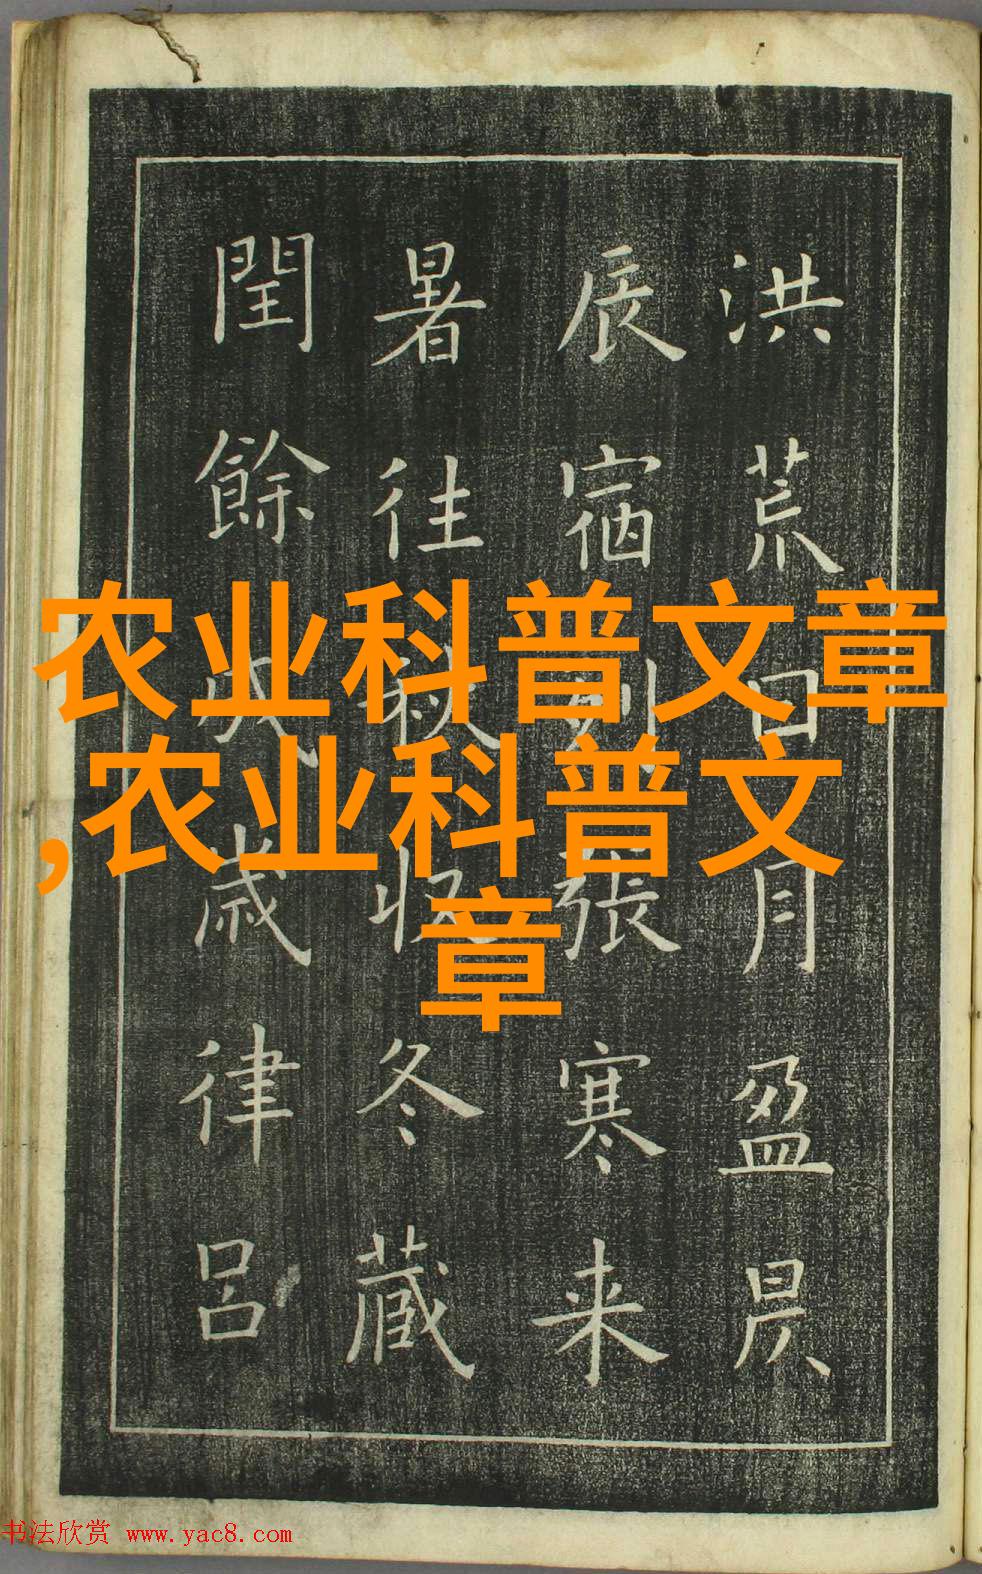 洪荒日月盈昃
辰宿列張寒来
暑往秋收冬藏
閏餘成歲律呂
农业科普文章
,农业科普文
章
书法欣赏 www.yac8.com